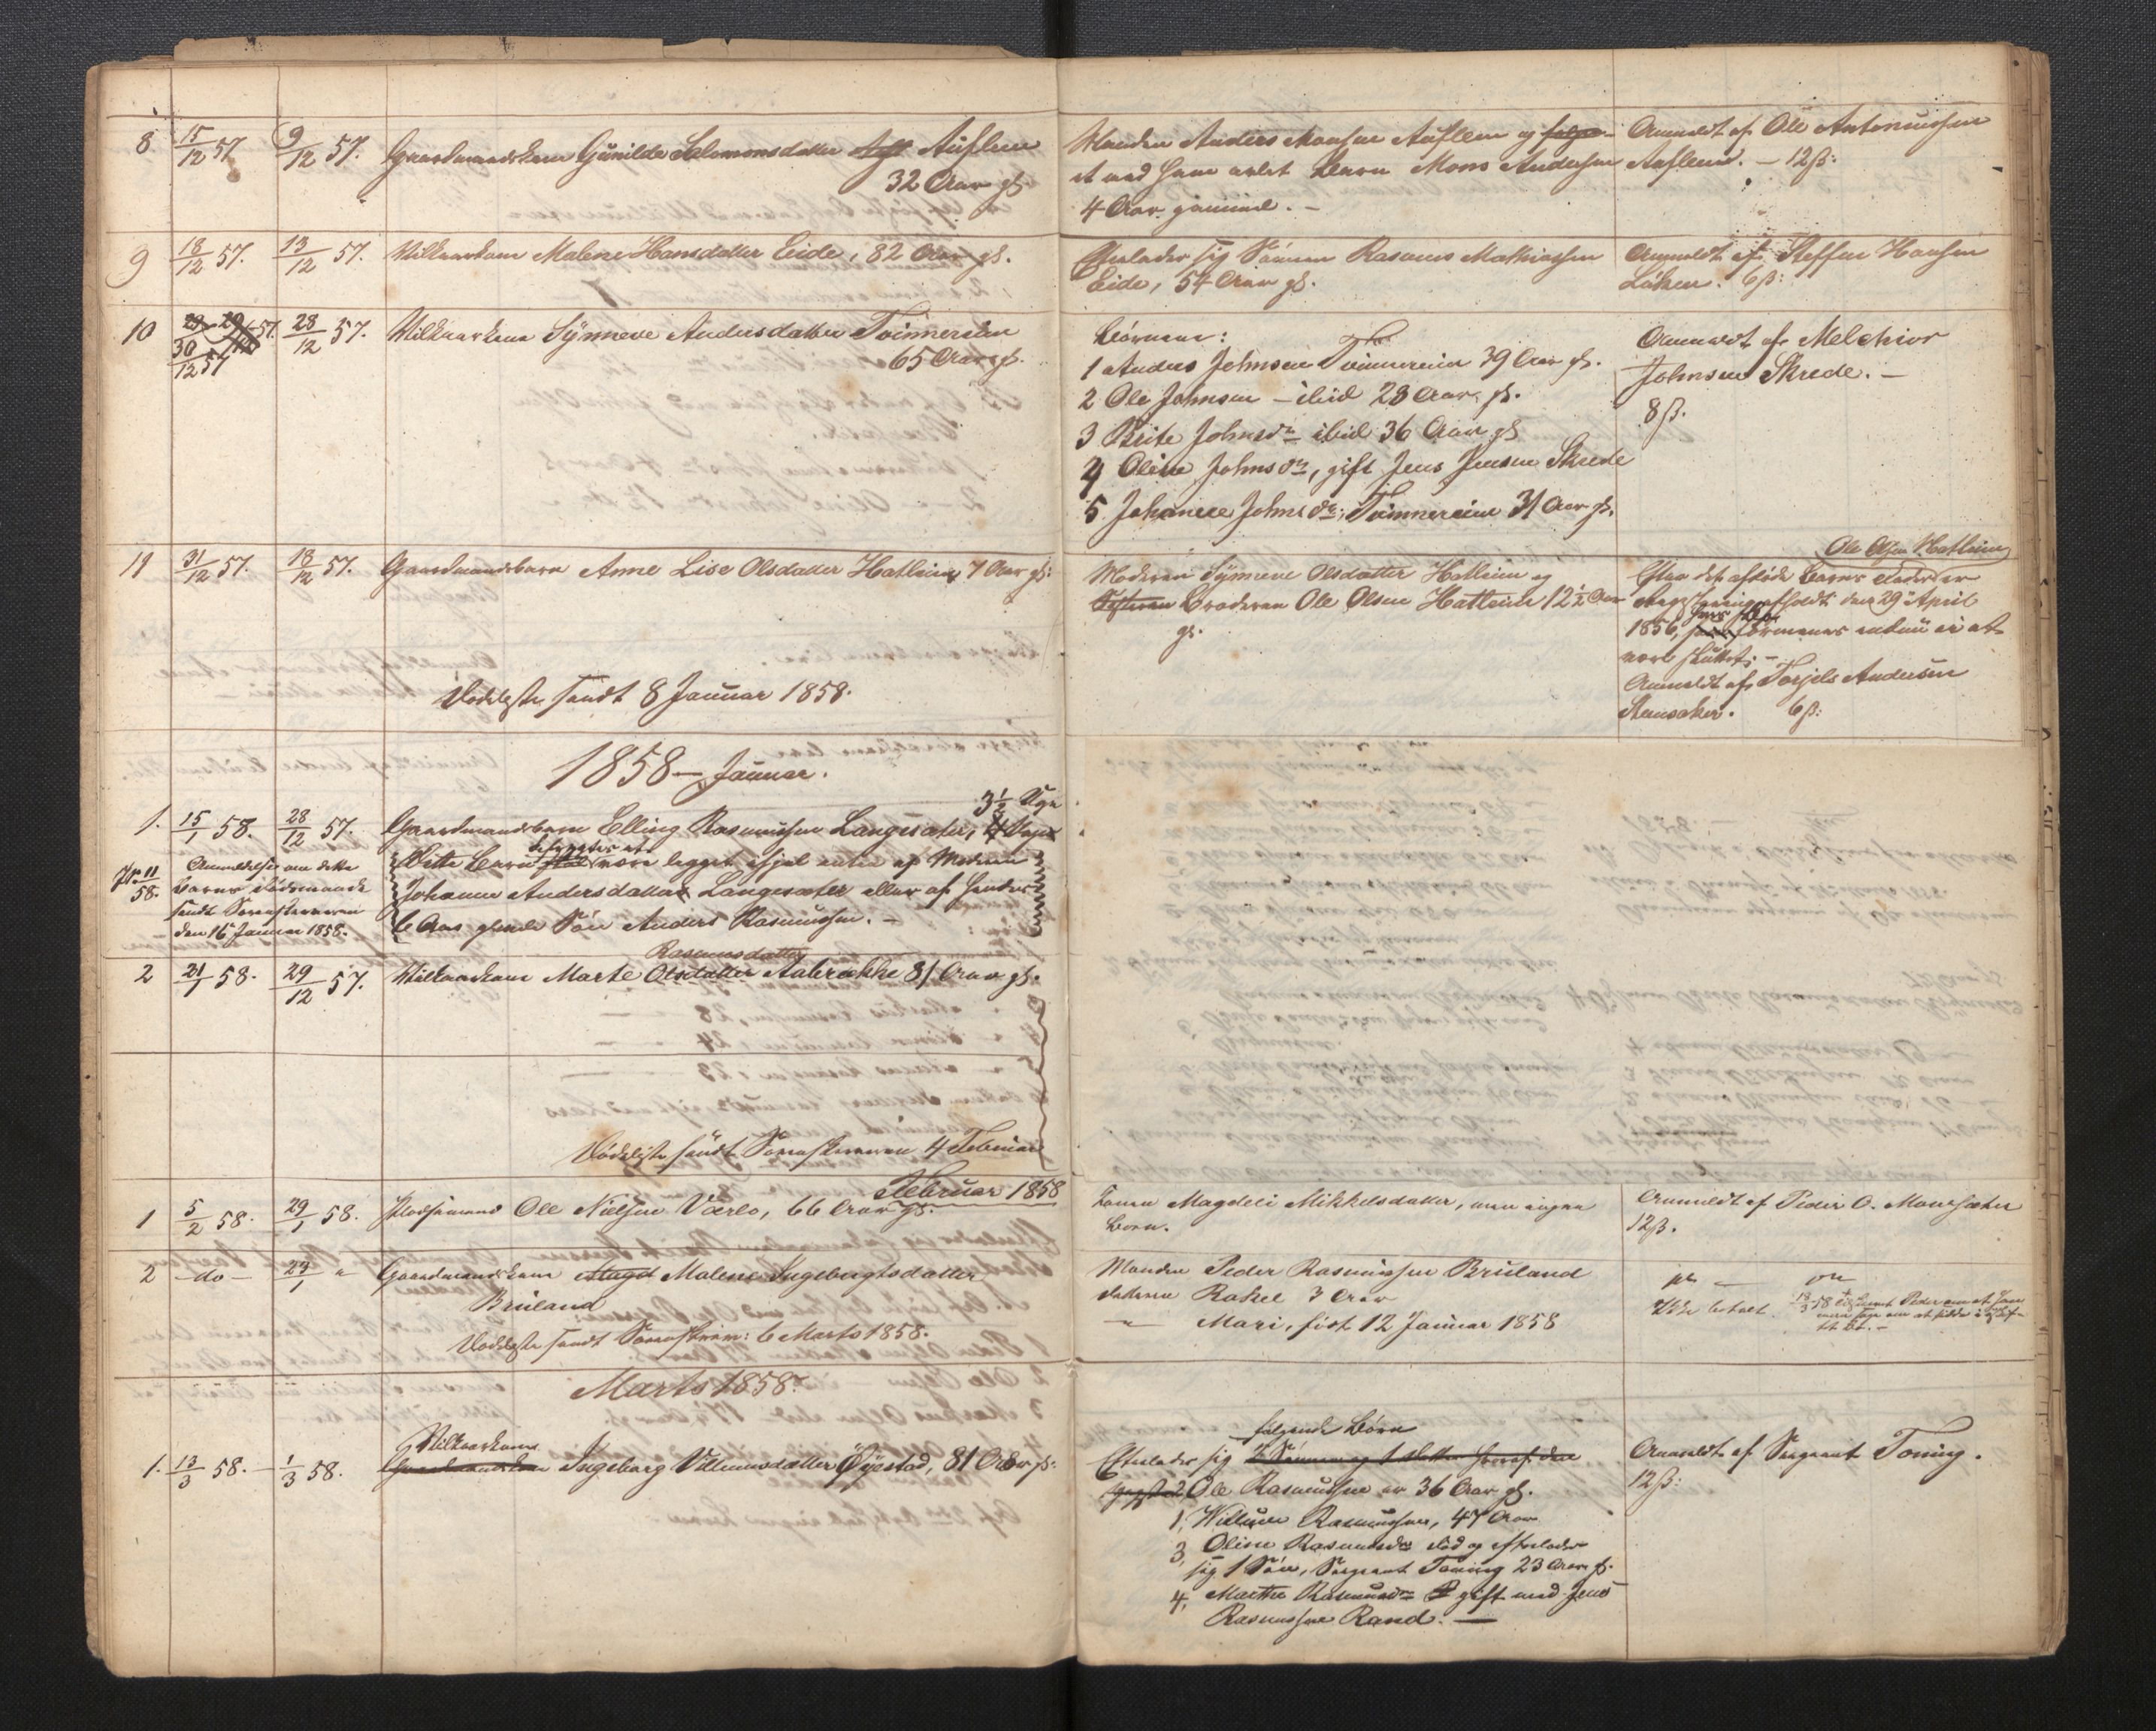 8 15/12 57. 9/12 57. Gaardmandskone Gunilde Salomonsdatter Auflem
32 Aar gl.
Manden Anders Monsen Auflem og
et med ham avlet Barn Mons Andersen
4 Aar gammel. –
Anmeldt af Ole Antoniussen
Auflem. – 12 ß:
9 18/12 57. 13/12 57. Vilkaarskone Malene Hansdatter Eide, 82 Aar gl.
Efterlader sig Sønnen Rasmus Mathiassen
Eide, 54 Aar gl.
Anmeldt af Steffen Hansen
Løken. 6 ß:
10 30/12 57 28/12 57. Vilkaarskone Synneve Andersdatter Tvinnereim
65 Aar gl.
Børnene:
1 Anders Johnsen Tvinnereim 39 Aar gl.
2 Ole Johnsen – ibid 28 Aar gl.
3 Brite Johnsdr ibid 36 Aar gl
4 Oline Johnsdr, gift Jens Jensen Skrede
5 Johanne Johnsdr, Tvinnereim 31 Aar gl.
Anmeldt af Melchior
Johnsen Skrede. –
8 ß.
11 31/12 57. 18/12 57. Gaardmandsbarn Anne Lise Olsdatter Hatleim 7 Aar gl:
Moderen Synneve Olsdatter Hatleim og
Søsteren Broderen Ole Olsen Hatleim 12 1/2 Aar
gl.
Ole Olsen Hatleim
Efter det afdøde Barns Fader er
afholdt den 29 April
1856, formenes endnu ei at
være sluttet; –
Anmeldt af Torjels Andersen
Stensaker. 6 ß:
Dødsliste sendt 8 Januar 1858.
1858 – Januar.
3 1/2 Uge
1. 15/1 58. 28/12 57. Gaardmandsbarn Elling Rasmussen Langesæter, 4 Uger
Jr. 11/58. Anmeldelse om dette
Barns Dødsmaade
sendt Sorenskriveren
den 16 Januar 1858.
Dette Barn skal befrygtes at være legget ihjel enten af Moderen
Johanne Andersdatter Langesæter eller af hendes
6 Aar gamle Søn Anders Rasmussen. –
Rasmusdatter
2 21/1 58. 29/12 57. Vilkaarskone Marte Olsdatter Aabrekke 81 Aar gl.
Dødsliste sendt Sorenskriveren 4 Februar
Februar 1858
1 5/2 58. 29/1 58. Ole Nielsen Værlo, 66 Aar gl.
Konen Magdeli Mikkelsdatter, men ingen
Børn.
Anmeldt af Peder O. Monsæter
12 ß.
2 – do – 29/1 " Gaardmandskone Magd Malene Ingebrigtsdatter
Bruland
Manden Peder Rasmussen Bruland
Datteren Rakel 3 Aar
– " – Mari, født 12 Januar 1858
Ikke betalt.
18/3 58
Dødsliste sendt Sorenskriv: 6 Marts 1858.
Marts 1858.
Vilkaarskone
1. 13/3 58. – 1/3 58. Gaardmandskone Ingeborg Villumsdatter Øyestad, 81 Aar gl:
følgende Børn
Efterlader sig 2 Sønner og 1 Datter hvoraf den
yngste 2 Ole Rasmussen er 36 Aar gl.
1, Willum Rasmussen, 47 Aar
3, Oline Rasmusdr død og efterlader
sig 1 Søn, Sergeant Toning 23 Aar gl.
4, Marthe Rasmusdr gift med Jens
Rasmussen Rand. —
Anmeldt af Sergeant Toning.
12 ß: